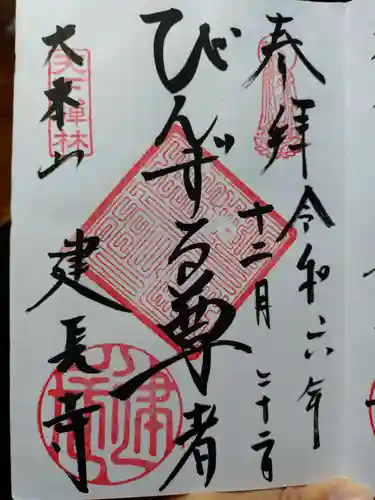 奉拝
令和六年
十二月二十二日
びんずる尊者
天下禅林
大本山
建長寺